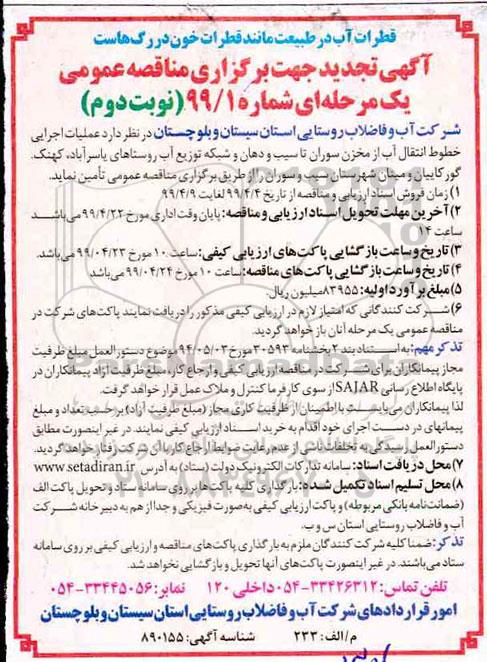 قطرات آب در طبیعت مانند قطرات خون در رگ هاست
آگهی تجدید جهت برگزاری مناقصه عمومی
یک مرحله‌ای شماره ۹۹/۱ (نوبت دوم)
شرکت آب و فاضلاب روستایی استان سیستان و بلوچستان در نظر دارد عملیات اجرایی
خطوط انتقال آب از مخزن سوران تا سیب و دهان و شبکه توزیع آب روستاهای یاسرآباد، کهنک،
گورکاییان و مینان شهرستان سیب و سوران را از طریق برگزاری مناقصه عمومی تأمین نماید.
۱) زمان فروش اسناد ارزیابی و مناقصه از تاریخ ۹۹/۴/۴ لغایت ۹۹/۴/۹
۲) آخرین مهلت تحویل اسناد ارزیابی و مناقصه: پایان وقت اداری مورخ ۹۹/۴/۲۲ می‌باشد
ساعت ۱۴
۳) تاریخ و ساعت بازگشایی پاکت‌های ارزیابی کیفی: ساعت ۱۰ مورخ ۹۹/۰۴/۲۳ می‌باشد.
۴) تاریخ و ساعت بازگشایی پاکت‌های مناقصه: ساعت ۱۰ مورخ ۹۹/۰۴/۲۴ می‌باشد
۵) مبلغ برآورد اولیه: ۸۳۹۵۵ میلیون ریال.
۶) شرکت کنندگانی که امتیاز لازم در ارزیابی کیفی مذکور را دریافت نمایند پاکت‌های شرکت در
مناقصه عمومی یک مرحله آنان باز خواهد گردید.
تذکر مهم: به استناد بند ۲ بخشنامه ۳۰۵۹۳ مورخ ۹۴/۰۵/۰۳ موضوع دستورالعمل مبلغ ظرفیت
مجاز پیمانکاران برای شرکت در مناقصه ارزیابی کیفی و ارجاع کار، مبلغ ظرفیت آزاد پیمانکاران در
پایگاه اطلاع رسانی SAJAR از سوی کارفرما کنترل و ملاک عمل قرار خواهد گرفت.
لذا پیمانکاران می‌بایست با اطمینان از ظرفیت کاری مجاز (مبلغ ظرفیت آزاد) برحسب تعداد و مبلغ
پیمانهای در دست اجرای خود اقدام به خرید اسناد ارزیابی کیفی نمایند. در غیر اینصورت مطابق
دستورالعمل رسیدگی به تخلفات ناشی از عدم رعایت ضوابط ارجاع کار با آن شرکت رفتار خواهد گردید.
۷) محل دریافت اسناد: سامانه تدارکات الکترونیک دولت (ستاد) به آدرس www.setadiran.ir
۸) محل تسلیم اسناد تکمیل شده: بارگذاری کلیه پاکت‌ها بر روی سامانه ستاد و تحویل پاکت الف
(ضمانت نامه بانکی مربوطه) و پاکت ارزیابی کیفی به صورت فیزیکی و جدا از هم به دبیرخانه شرکت
آب و فاضلاب روستایی استان س و ب.
تذکر: ضمنا کلیه شرکت کنندگان ملزم به بارگذاری پاکت‌های مناقصه و ارزیابی کیفی بر روی سامانه
ستاد می‌باشند. در غیر اینصورت پاکت‌های آنها تحویل و بازگشایی نخواهد شد.
تلفن تماس: ۳۳۴۲۶۳۱۲-۰۵۴ داخلی ۱۲۰ نمابر: ۳۳۴۴۵۰۵۶-۰۵۴
امور قراردادهای شرکت آب و فاضلاب روستایی استان سیستان و بلوچستان
م/الف: ۲۳۳ شناسه آگهی: ۸۹۰۱۵۵